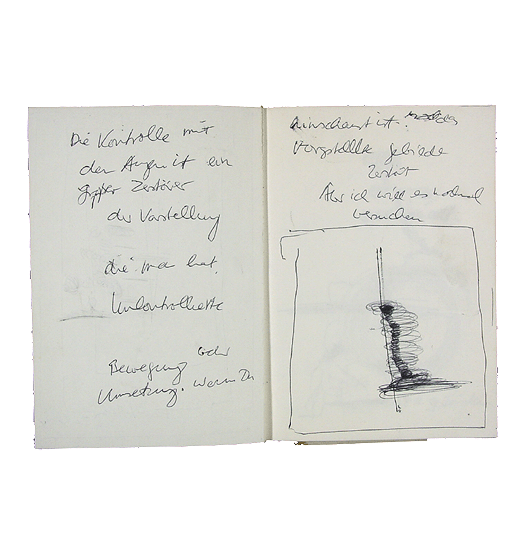 Die Kontrolle mit
den Augen ist ein
großer Zerstörer
der Vorstellung
die man hat.
Unkontrollierte
Bewegung oder
Umsetzung. Wenn Du
hinschaust ist
vorgestellte Gebäude
Zerstört
Aber ich will es nochmal
versuchen